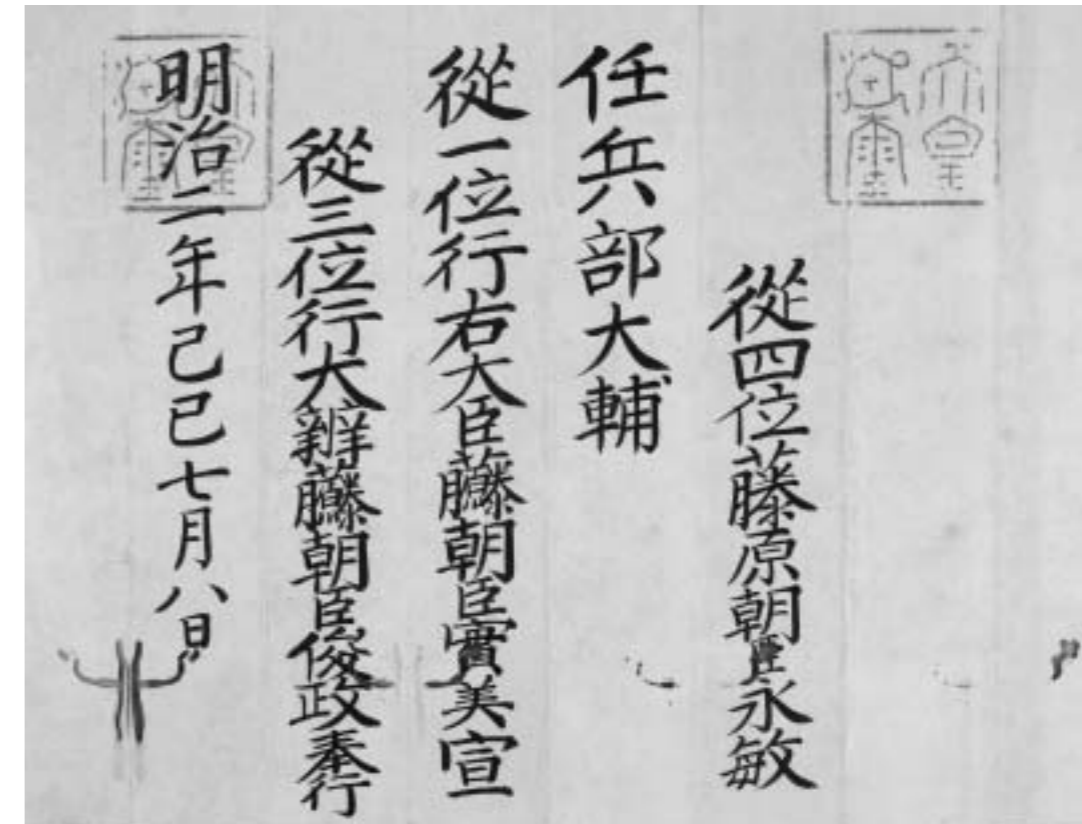 從四位藤原朝臣永敏
任兵部大輔
從一位行右大臣藤原朝臣實美宣
從三位行大辨藤原朝臣俊政奉行
明治二年己巳七月八日